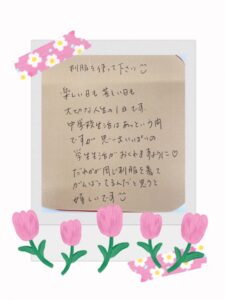 制服を使って下さい
楽しい日も 苦しい日も
大切な人生の1日です
中学校生活はあっという間
ですが 思い出いっぱいの
学生生活がおくれますように♡
だれかが同じ制服を着て
がんばってるんだと思うと
嬉しいです